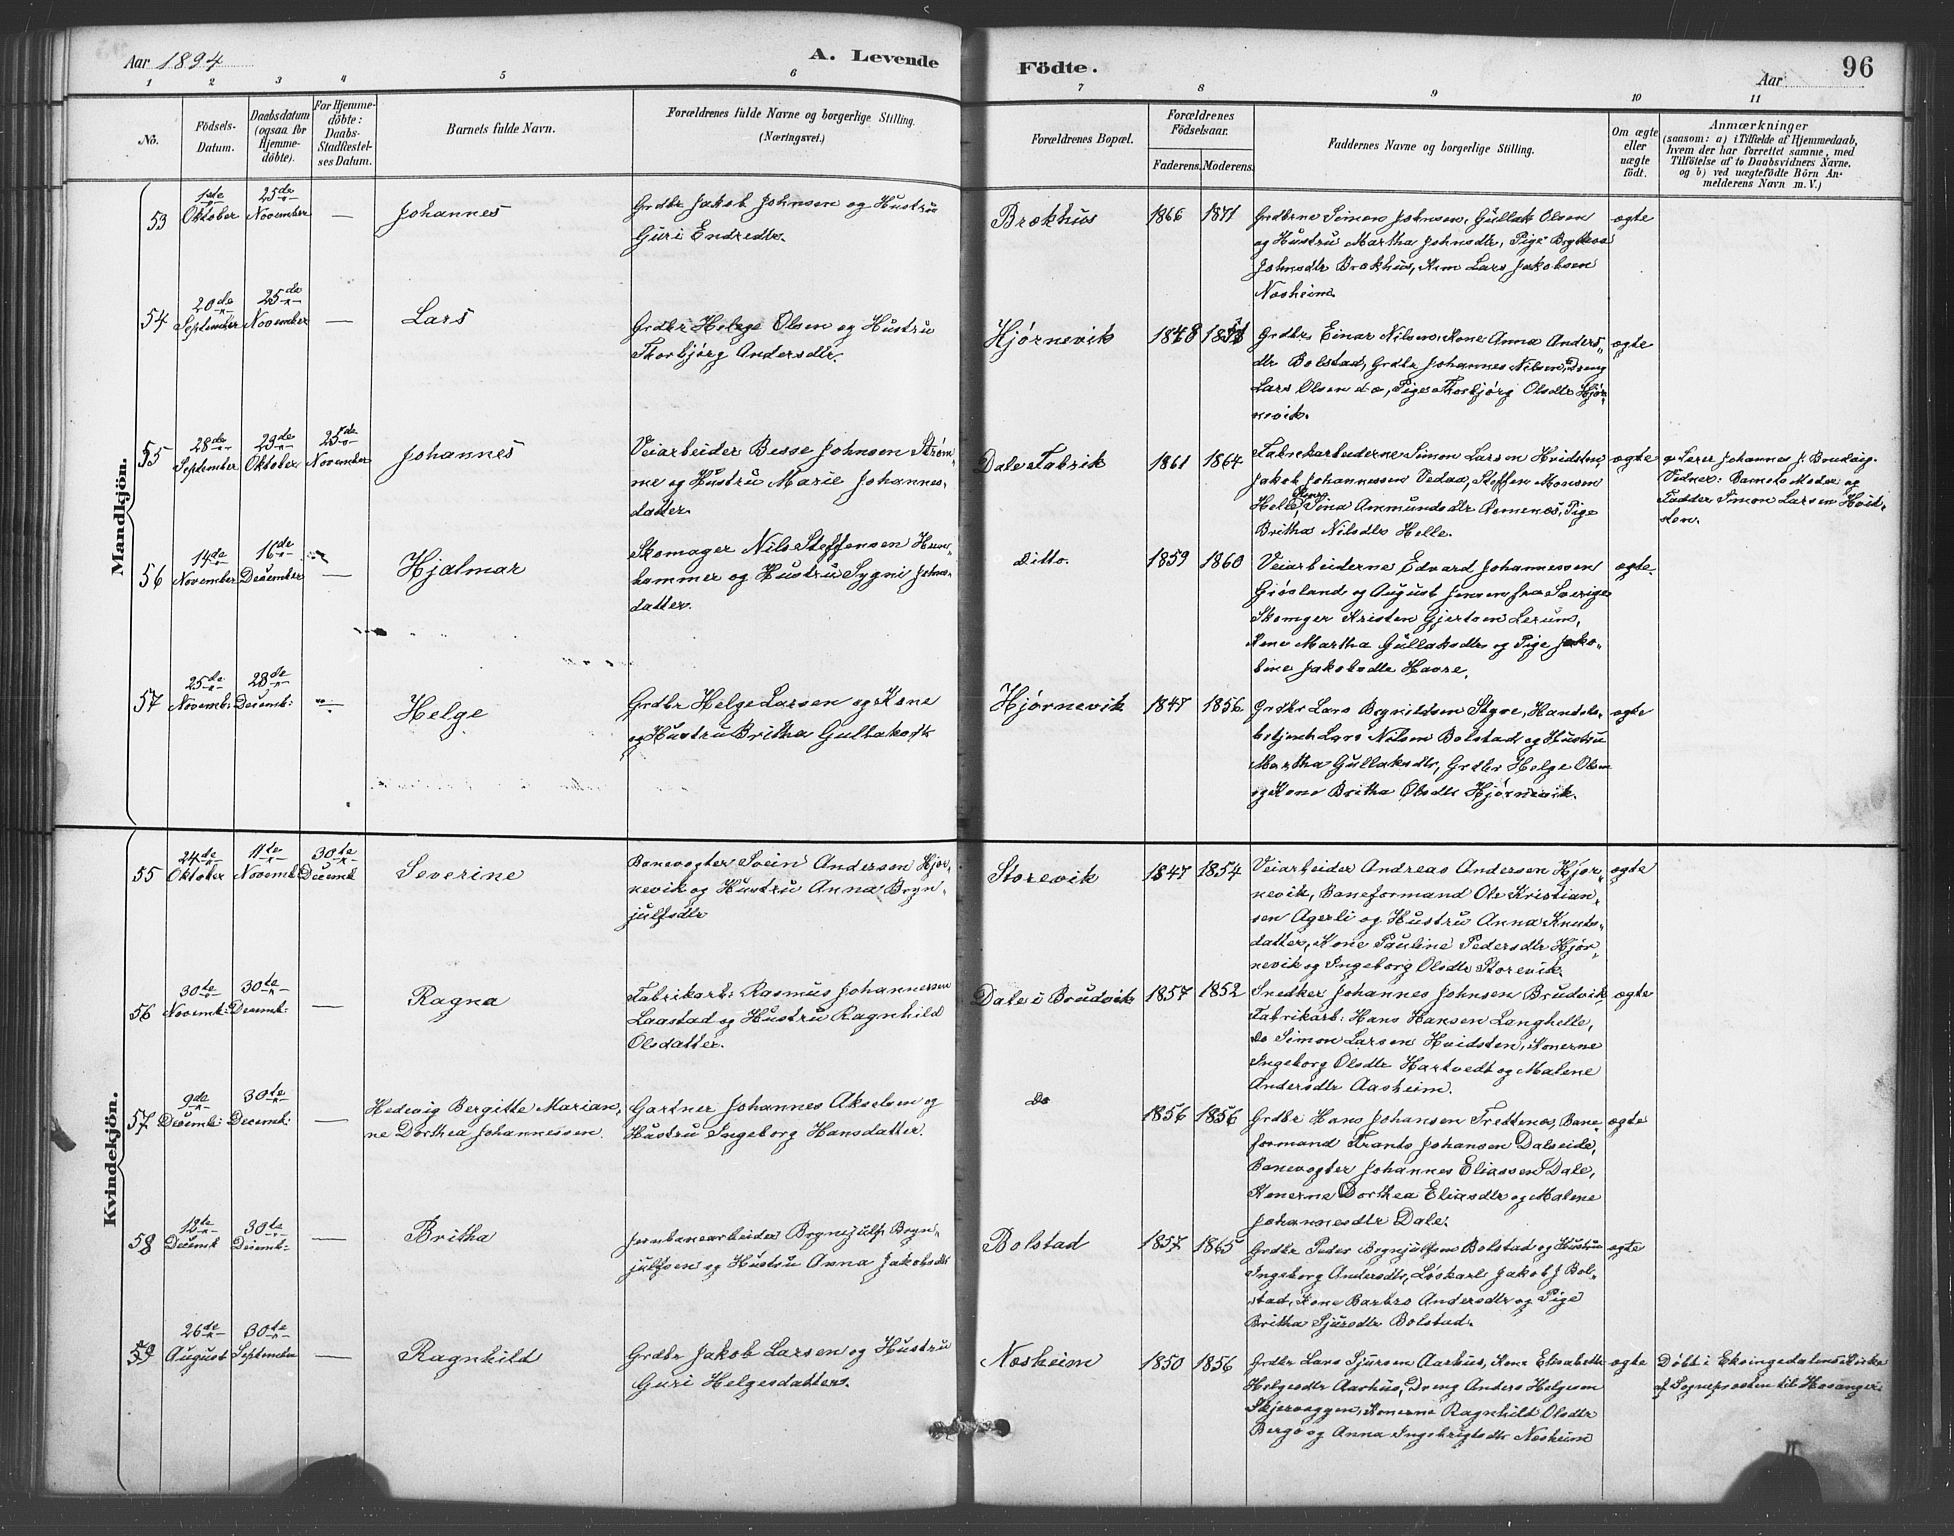 Aar 1894
A. Levende
Födte.
Aar
96
1 2 3 4 5 6 7 8 9 10 11
No.
Födsels-
Datum.
Daabsdatum
(ogsaa for
Hjemme-
döbte).
For Hjemme-
döbte:
Daabs-
Stadfæstel-
ses Datum.
Barnets fulde Navn.
Forældrenes fulde Navne og borgerlige Stilling.
(Næringsvei.)
Forældrenes Bopæl.
Forældrenes
Födselsaar.
Faderens. Moderens.
Faddernes Navne og borgerlige Stilling.
Om ægte
eller
uægte
födt.
Anmærkninger
(saasom: a) i Tilfælde af Hjemmedaab,
hvem der har forrettet samme, med
Tilfötelse af to Daabsvidners Navne,
og b) ved uægtefödte Börn An-
melderens Navn m. V.)
Mandkjön.
53
1ste
Oktober
25de
November
—
Johannes
Grdbr Jakob Johnsen og Hustru
Guri Endredtr.
Brækhus
1866 1871
Grdbrne Simon Johnsen, Gullak Olsen
og Hustru Martha Johnsdtr, Pige
Johnsdtr Brækhus, Lars Jakobsen
Næsheim.
ægte
54
20de
September
25de
November
—
Lars
Grdbr Helge Olsen og Hustru
Thorbjørg Andersdtr.
Hjørnevik
1848
Grdbr. Einar Nilsen, Kone Anna Anders-
dtr Bolstad, Grdbr Johannes Nilsen, Dreng
Lars Olsen do, Pige Thorbjørg Olsdtr Hjør-
nevik.
ægte
55
28de
September
29de
Oktober
25de
November
Johannes
Veiarbeider Besse Johnsen Strøm-
me og Hustru Marie Johannes-
datter.
Dale Fabrik
1861 1864
Fabrikarbeiderne Simon Larsen Hvidsten,
Jakob Johannessen Vedaa, Steffen Monsen
Helle, Sina Ammundsdtr Ramenes, Pige
Britha Nilsdtr Helle.
ægte
Lærer Johannes J. Brudvig.
Vidner: Barnets Moder og
Fadder Simon Larsen Hvid-
sten.
56
14de
November
16de
December
—
Hjalmar
Skomager Nils Steffensen
hammer og Hustru Sygni Johns-
datter.
ditto.
1859 1860
Veiarbeiderne Edvard Johannessen
Grøsland og August Jensen fra Sverige
Skomger Kristen Gjertsen Lerum,
Kone Martha Gullaksdtr og Pige Jako-
bine Jakobsdtr Haare.
ægte.
57
25de
Novemb:
28de
Decemb:
—
Helge
Grdbr Helge Larsen og Kone
og Hustru Britha Gullaksdtr
Hjørnevik
1847 1856
Grdbr Lars Brynildsen Styve, Handels-
betjent Lars Nilsen Bolstad og Hustru
Martha Gullaksdtr, Grdbr Helge Olsen
og Kone Britha Olsdtr Hjørnevik.
ægte
Kvindekjön.
55
24de
Oktober
11te
Novemb
30te
Decemb
Severine
Banevogter Svein Andersen Hjør-
nevik og Hustru Anna Bryn-
julfsdtr
Storevik
1847 1854
Veiarbeider Andreas Andersen Hjør-
nevik, Baneformand Ole Kristian-
sen Agerli og Hustru Anna Knuts-
datter, Kone Pauline Pedersdtr Hjør-
nevik og Ingeborg Olsdtr Storevik.
ægte
56
30te
Novemb:
30te
Decemb:
—
Ragna
Fabrikarb: Rasmus Johannessen
Laastad og Hustru Ragnhild
Olsdatter.
Dale i Brudvik
1857 1852
Snedker Johannes Johnsen Brudvik,
Fabrikarb: Hans Hansen Langhelle,
do Simon Larsen Hvidsten, Konerne
Ingeborg Olsdtr Hartvedt og Malene
Andersdtr Aasheim.
ægte
57
9de
Decemb:
30te
Decemb:
—
Hedevig Bergitte Marian-
ne Dorthea Johannessen.
Gartner Johannes Akselsen og
Hustru Ingeborg Hansdatter.
Do
1856 1856
Grdbr Hans Johansen Trettenes, Bane-
formand Frants Johansen Dalseide,
Banevogter Johannes Eliassen Dale,
Konerne Dorthea Eliasdtr og Malene
Johannesdtr Dale.
ægte
58
18te
Decemb
30te
Decemb:
—
Britha
Jernbanearbeider Brynjulf Bryn-
julfsen og Hustru Anna Jakobsdtr
Bolstad
1857 1865
Grdbr Peder Brynjulfsen Bolstad og Hustru
Ingeborg Andersdtr, Løskarl Jakob J. Bol-
stad, Kone Barbro Andersdtr og Pige
Britha Sjursdtr Bolstad.
ægte
59
26de
August
30te
September
—
Ragnhild
Grdbr Jakob Larsen og Hustru
Guri Helgesdatter.
Næsheim
1850 1856
Grdbr Lars Sjursen Aarhus, Kone Elisabeth
Helgesdtr Aarhus, Dreng Anders Helgesen
Skjervaggen, Konerne Ragnhild Olsdtr
Bergo og Anna Ingebrigtsdtr Næsheim
ægte
Døbt i Eksingedalens Kirke
af Sognepresten til Hosanger.